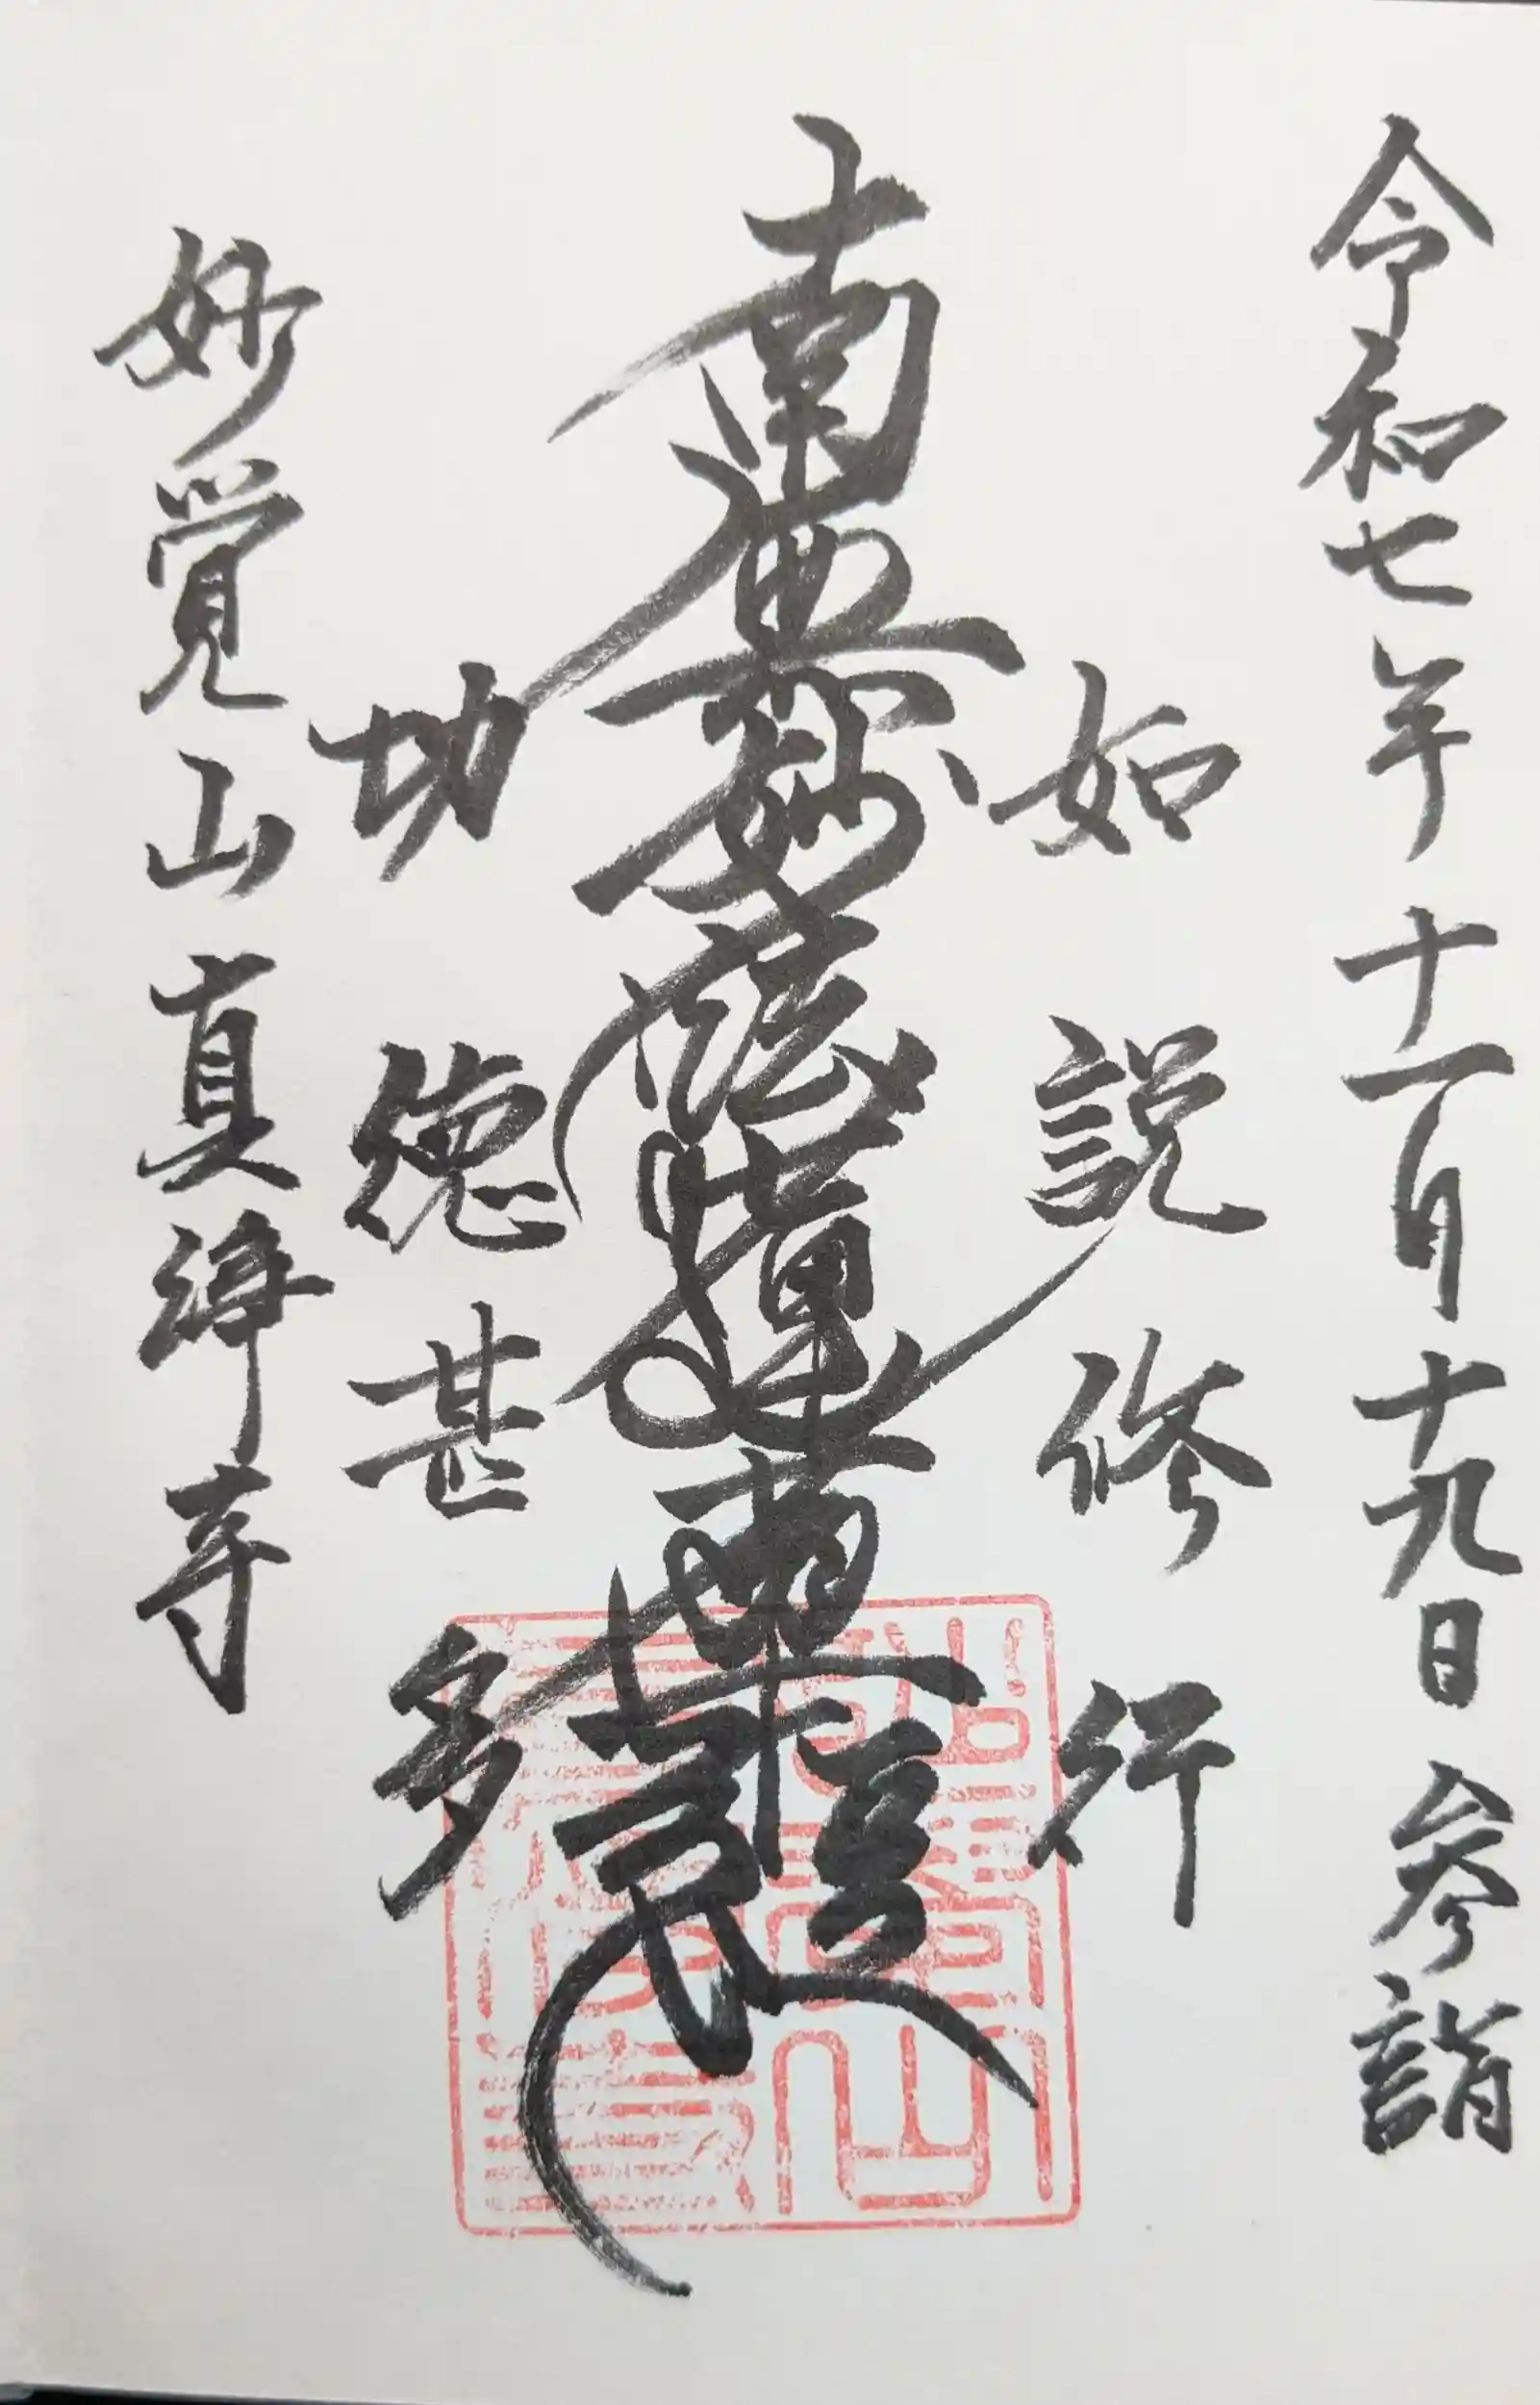 令和七年十一月十九日 参詣
如説修行
南無妙法蓮華経
功徳甚多
妙覚山 真浄寺